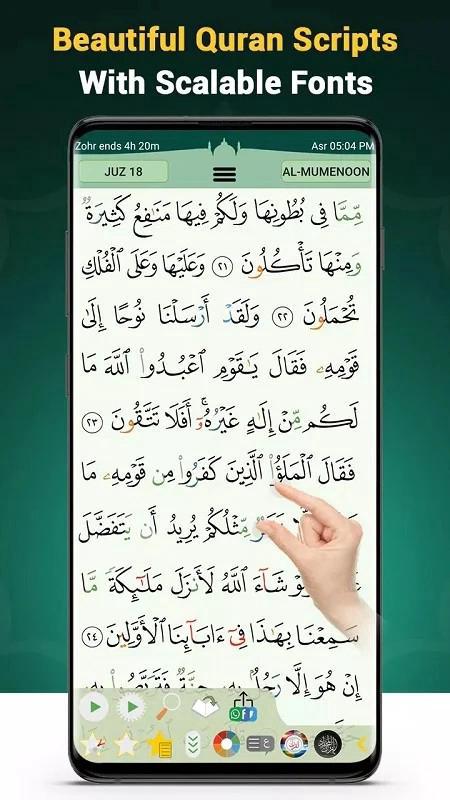 Beautiful Quran Scripts
With Scalable Fonts
Zohr ends 4h 20m
Asr 05:04 PM
JUZ 18
AL-MUMENOON
مِّمَّا فِي بُطُونِهَا وَلَكُمْ فِيهَا مَنَٰفِعُ كَثِيرَةٌ
وَمِنْهَا تَأْكُلُونَ ٢١ وَعَلَيْهَا وَعَلَى ٱلْفُلْكِ
تُحْمَلُونَ ٢٢ وَلَقَدْ أَرْسَلْنَا نُوحًا إِلَىٰ
قَوْمِهِۦ فَقَالَ يَٰقَوْمِ ٱعْبُدُوا۟ ٱللَّهَ مَا
لَكُم مِّنْ إِلَٰهٍ غَيْرُهُۥٓ ۚ أَفَلَا تَتَّقُونَ ٢٣
فَقَالَ ٱلْمَلَؤُا۟ ٱلَّذِينَ كَفَرُوا۟ مِن قَوْمِهِۦ مَا
مِّثْلُكُمْ يُرِيدُ أَن يَتَفَضَّلَ
شَآءَ ٱللَّهُ لَأَنزَلَ مَلَٰٓئِكَةً مَّا
سَمِعْنَا بِهَٰذَا فِيٓ ءَابَآئِنَا ٱلْأَوَّلِينَ ٢٤
إِنْ هُوَ إِلَّا رَجُلٌۢ بِهِۦ جِنَّةٌ فَتَرَبَّصُوا۟ بِهِۦ